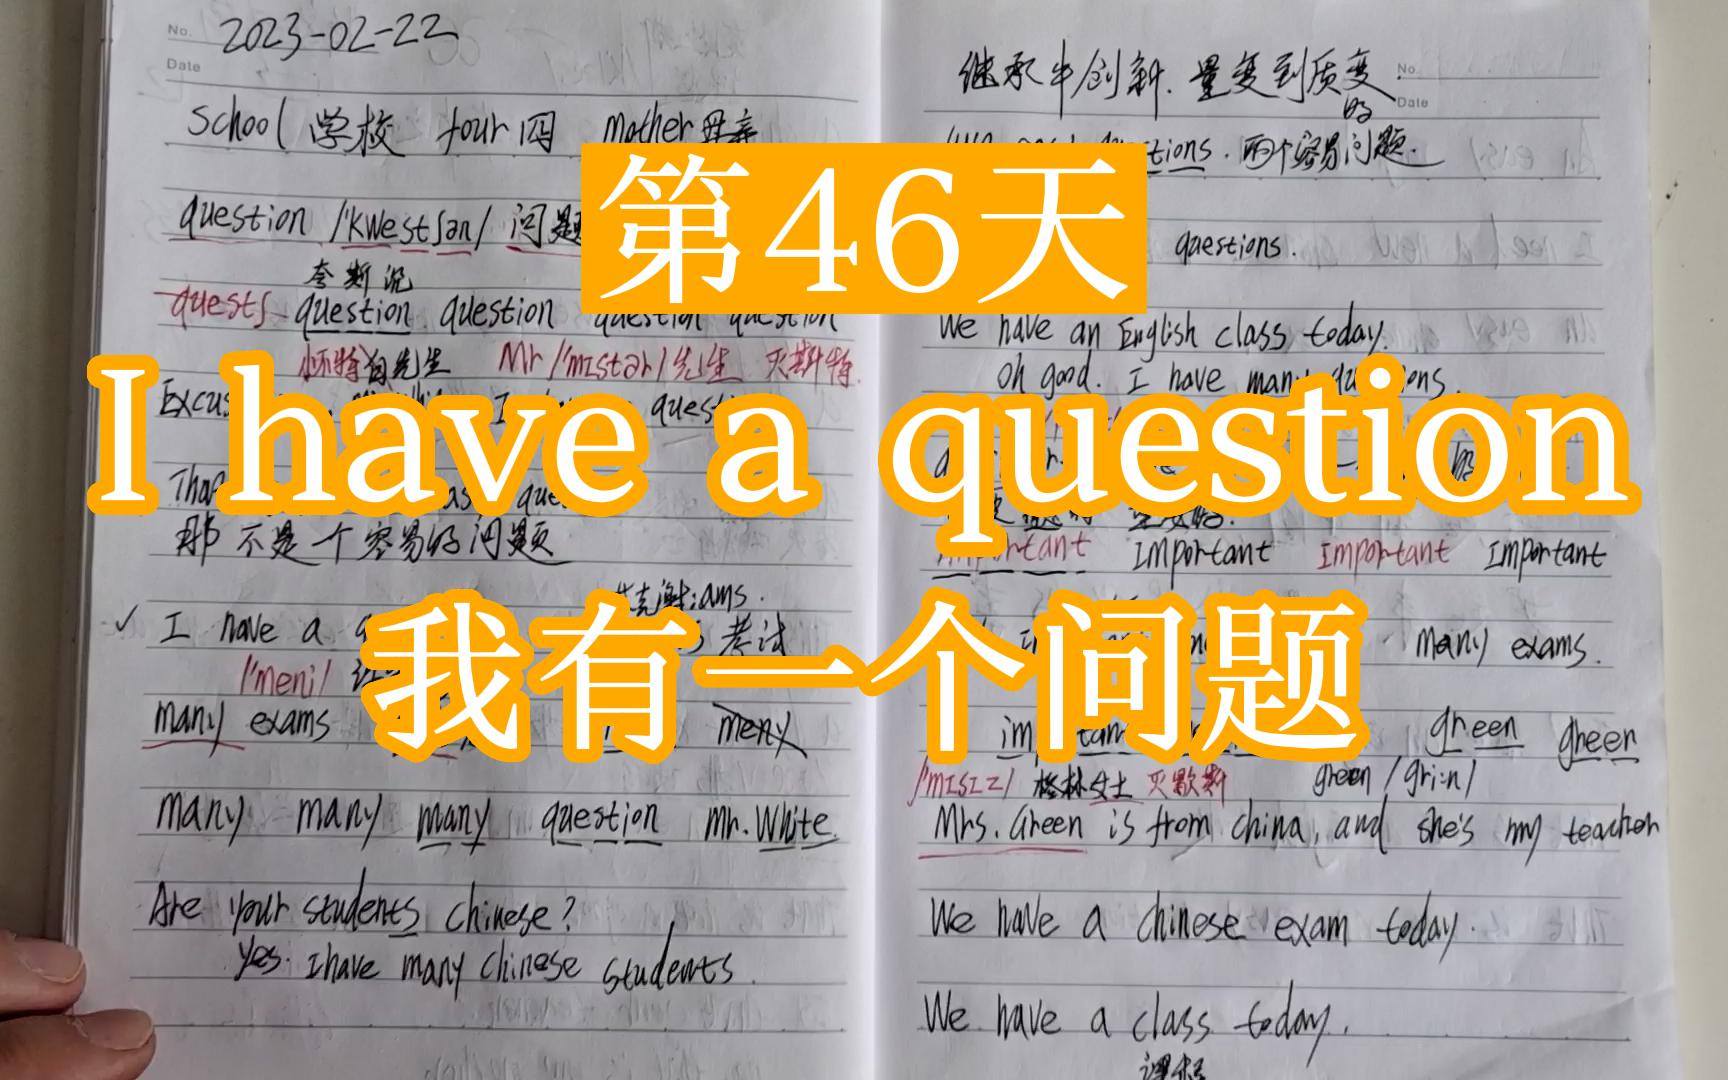 No.
2023-02-22
Date
school 学校 four 四 mother 母亲
question /'kwestʃən/ 问题
夸斯沉
question question question question
怀特白先生 Mr /'mɪstər/ 先生 灭斯特
question
那 不是一个容易的问题
I have a
考试
/'meni/
many exams meny
many many many question mr. White.
Are your students chinese?
yes. I have many chinese students.
继承中创新. 量变到质变.
No.
Date
的
questions. 两个容易问题.
questions.
We have an English class today.
oh good. I have many questions.
important important important important
many exams.
green green
/'mɪsɪz/ 格林女士 灭歇斯 green /gri:n/
Mrs. Green is from china, and she's my teacher
We have a chinese exam today.
We have a class today.
课程
第46天
I have a question
我有一个问题